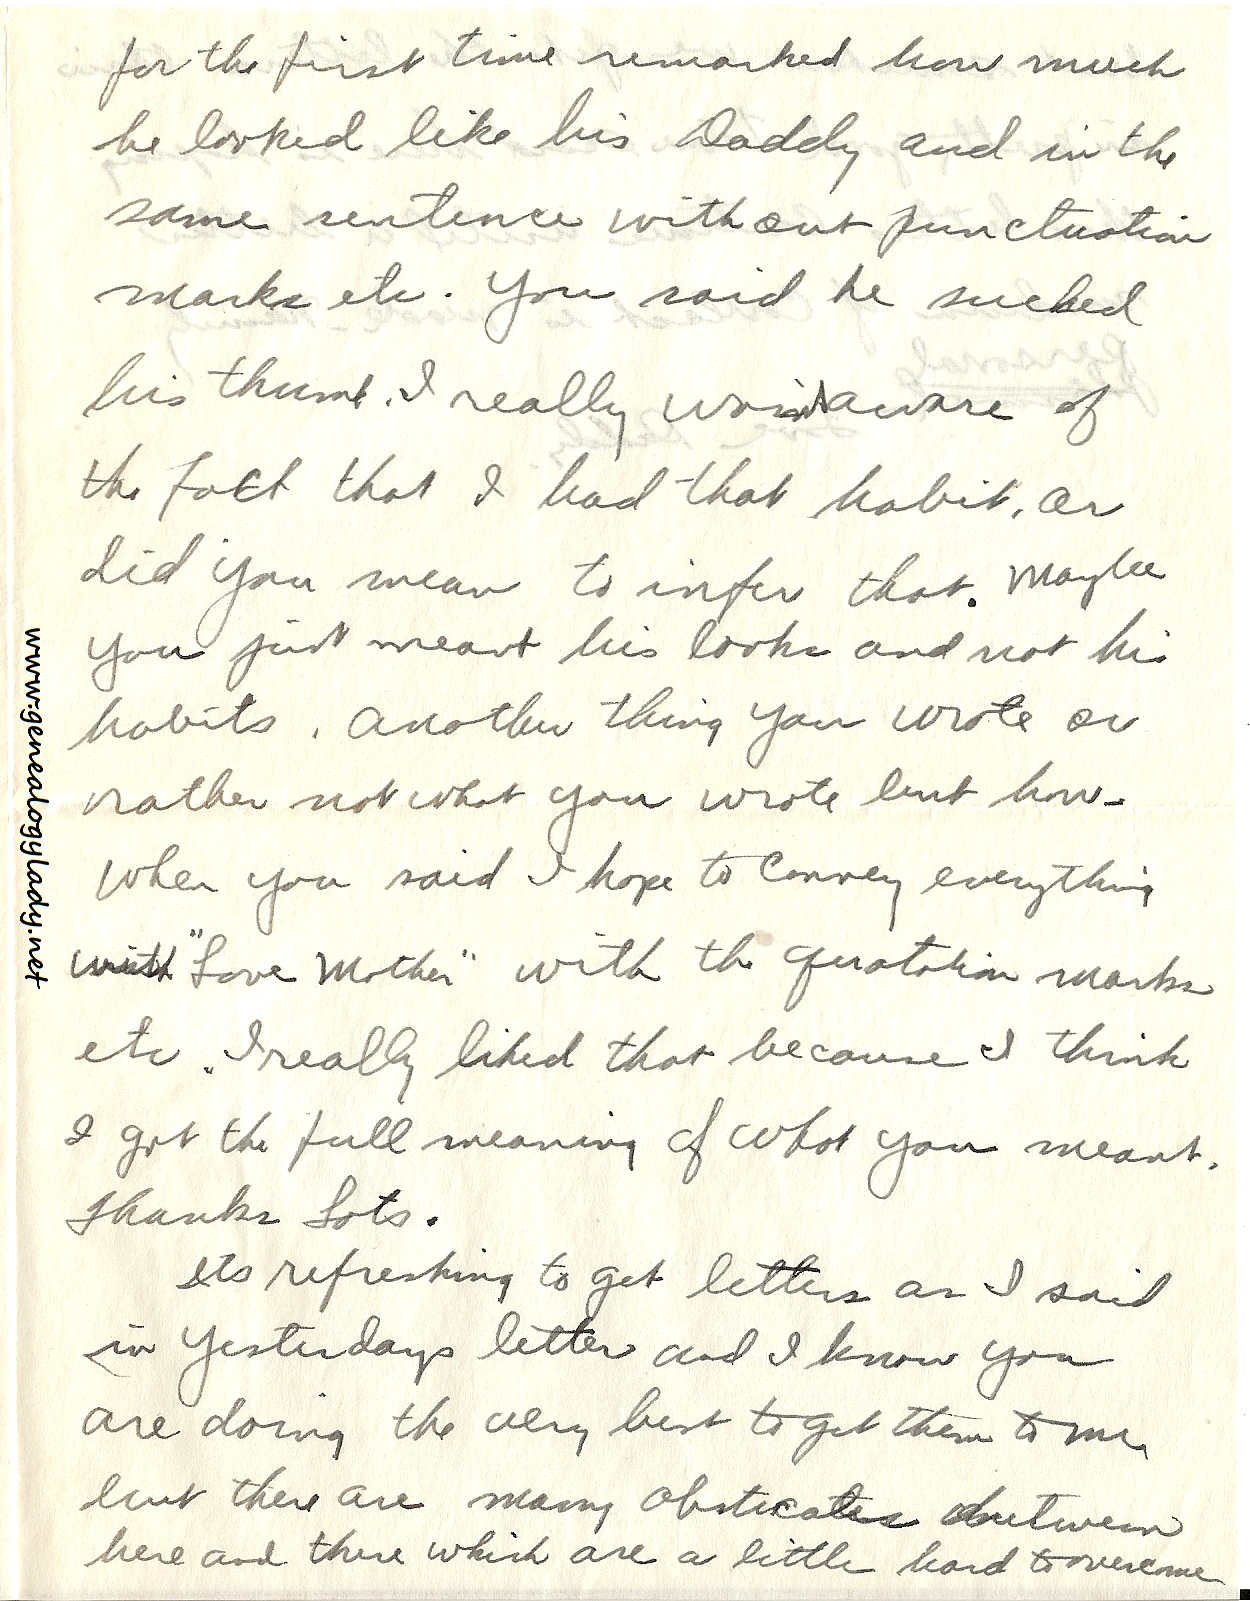 for the first time remarked how much
he looked like his Daddy and in the
same sentence without punctuation
marks etc. You said he sucked
his thumb. I really wasn't aware of
the fact that I had that habit, or
did you mean to infer that. Maybe
you just meant his looks and not his
habits. Another thing you wrote or
rather not what you wrote but how-
When you said I hope to convey everything
with "Love Mother" with the quotation marks
etc. I really liked that because I think
I got the full meaning of what you meant.
Thanks Lots.
Its refreshing to get letters as I said
in Yesterdays letter and I know you
are doing the very best to get them to me
but there are many obsticales between
here and there which are a little hard to overcome
www.genealogylady.net